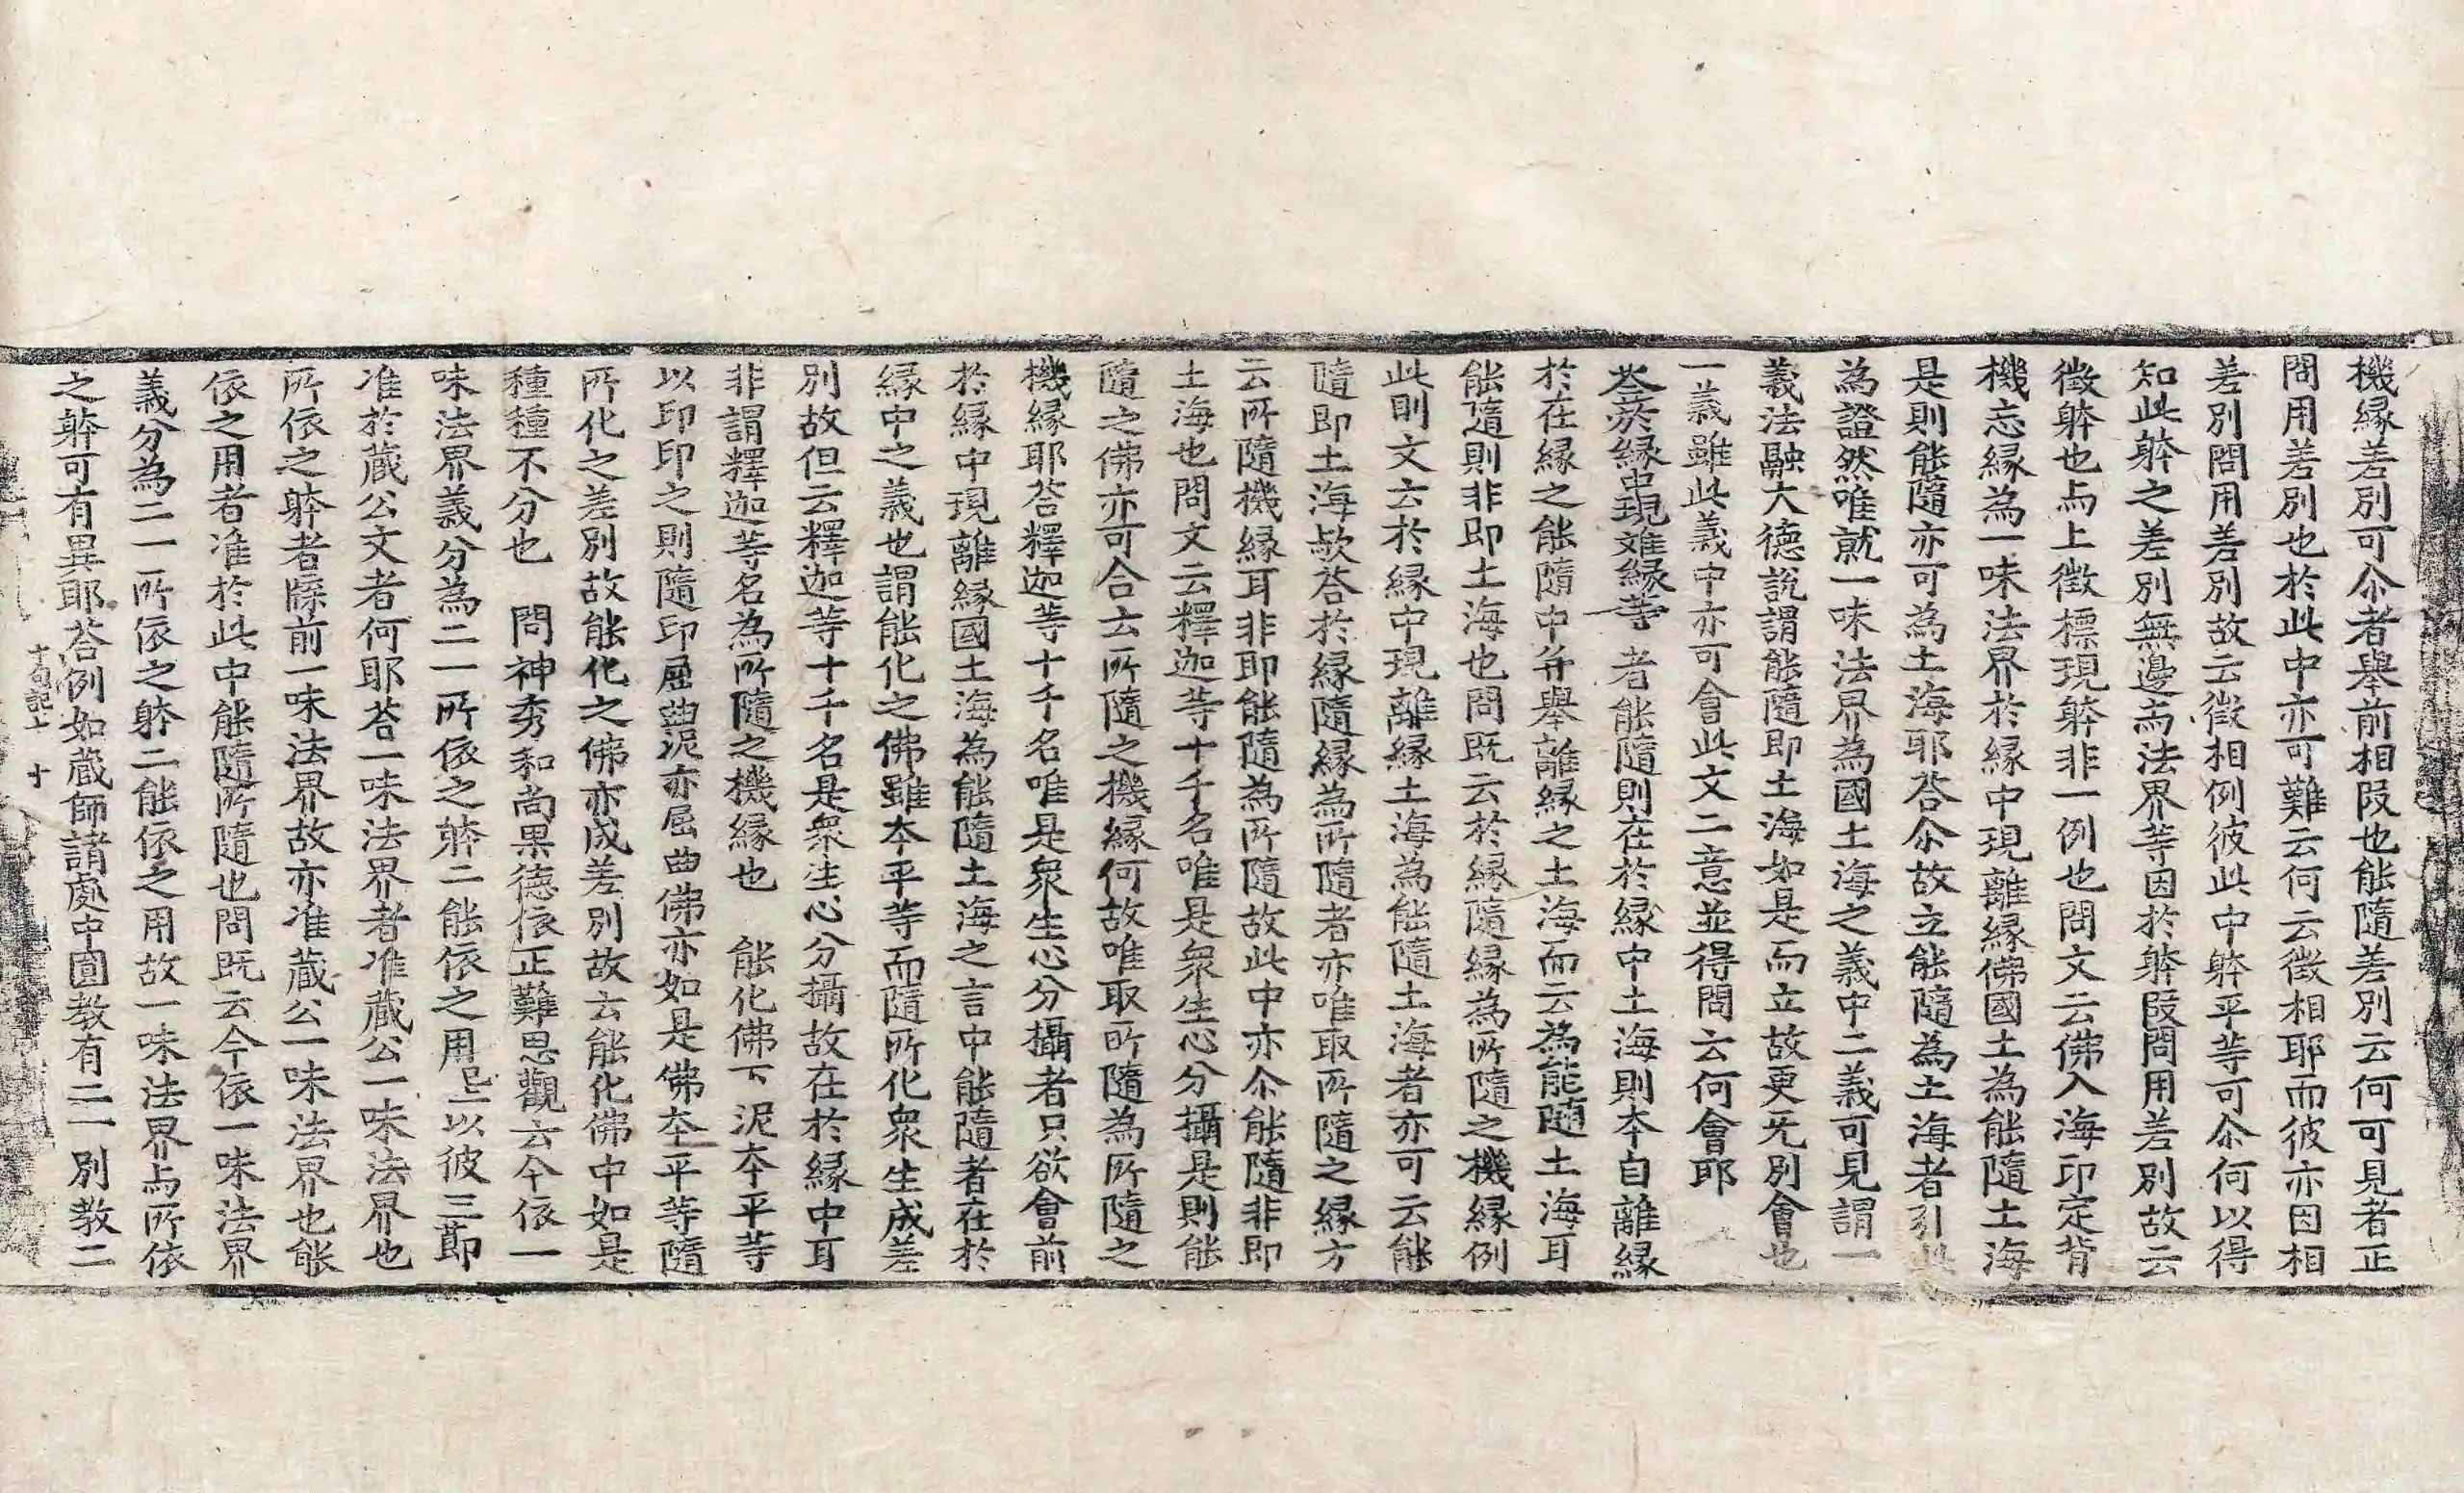 機縁差別可尒者舉前相叚也能隨差別云何可見者正
問用差別也於此中亦可難云何云徵相耶而彼亦因相
差別問用差別故云徵相例彼此中躰平等可尒何以得
知此躰之差別無邊而法界等因於躰叚問用差別故云
徵躰也与上徵標現躰非一例也問文云佛入海印定背
機忘縁為一味法界於縁中現離縁佛國土為能隨土海
是則能隨亦可為土海耶荅尒故立能隨為土海者引此
為證然唯就一味法界為國土海之義中二義可見謂一
義法融大德説謂能隨即土海如是而立故更无別會也
一義雖此義中亦可會此文二意並得問云何會耶
荅於縁中現離縁等者能隨則在於縁中土海則本自離縁
於在縁之能隨中并舉離縁之土海而云為能隨土海耳
能隨則非即土海也問既云於縁隨縁為所隨之機縁例
此則文云於縁中現離縁土海為能隨土海者亦可云能
隨即土海歟荅於縁隨縁為所隨者亦唯取所隨之縁方
云所隨機縁耳非即能隨為所隨故此中亦尒能隨非即
土海也問文云釋迦等十千名唯是衆生心分攝是則能
隨之佛亦可合云所隨之機縁何故唯取所隨為所隨之
機縁耶荅釋迦等十千名唯是衆生心分攝者只欲會前
於縁中現離縁國土海為能隨土海之言中能隨者在於
縁中之義也謂能化之佛雖夲平等而隨所化衆生成差
別故但云釋迦等十千名是衆生心分攝故在於縁中耳
非謂釋迦等名為所隨之機縁也　能化佛下泥夲平等
以印印之則隨印屈曲泥亦屈曲佛亦如是佛夲平等隨
所化之差別故能化之佛亦成差別故云能化佛中如是
種種不分也　問神秀和尚果德依正難思觀云今依一
味法界義分為二一所依之躰二能依之用已上以彼三莭
准於蔵公文者何耶荅一味法界者准蔵公一味法界也
所依之躰者牒前一味法界故亦准蔵公一味法界也能
依之用者准於此中能隨所隨也問既云今依一味法界
義分為二一所依之躰二能依之用故一味法界与所依
之躰可有異耶荅例如蔵師諸處中圓教有二一別教二
十句記上　十